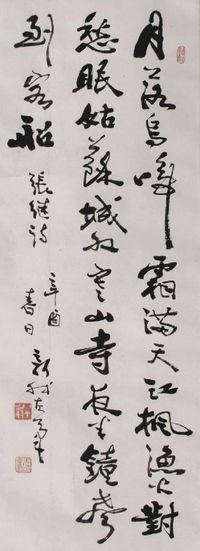 月落烏啼霜滿天江楓漁火對
愁眠姑蘇城外寒山寺夜半鐘聲
到客船
張繼詩
辛酉
春日
新我左筆